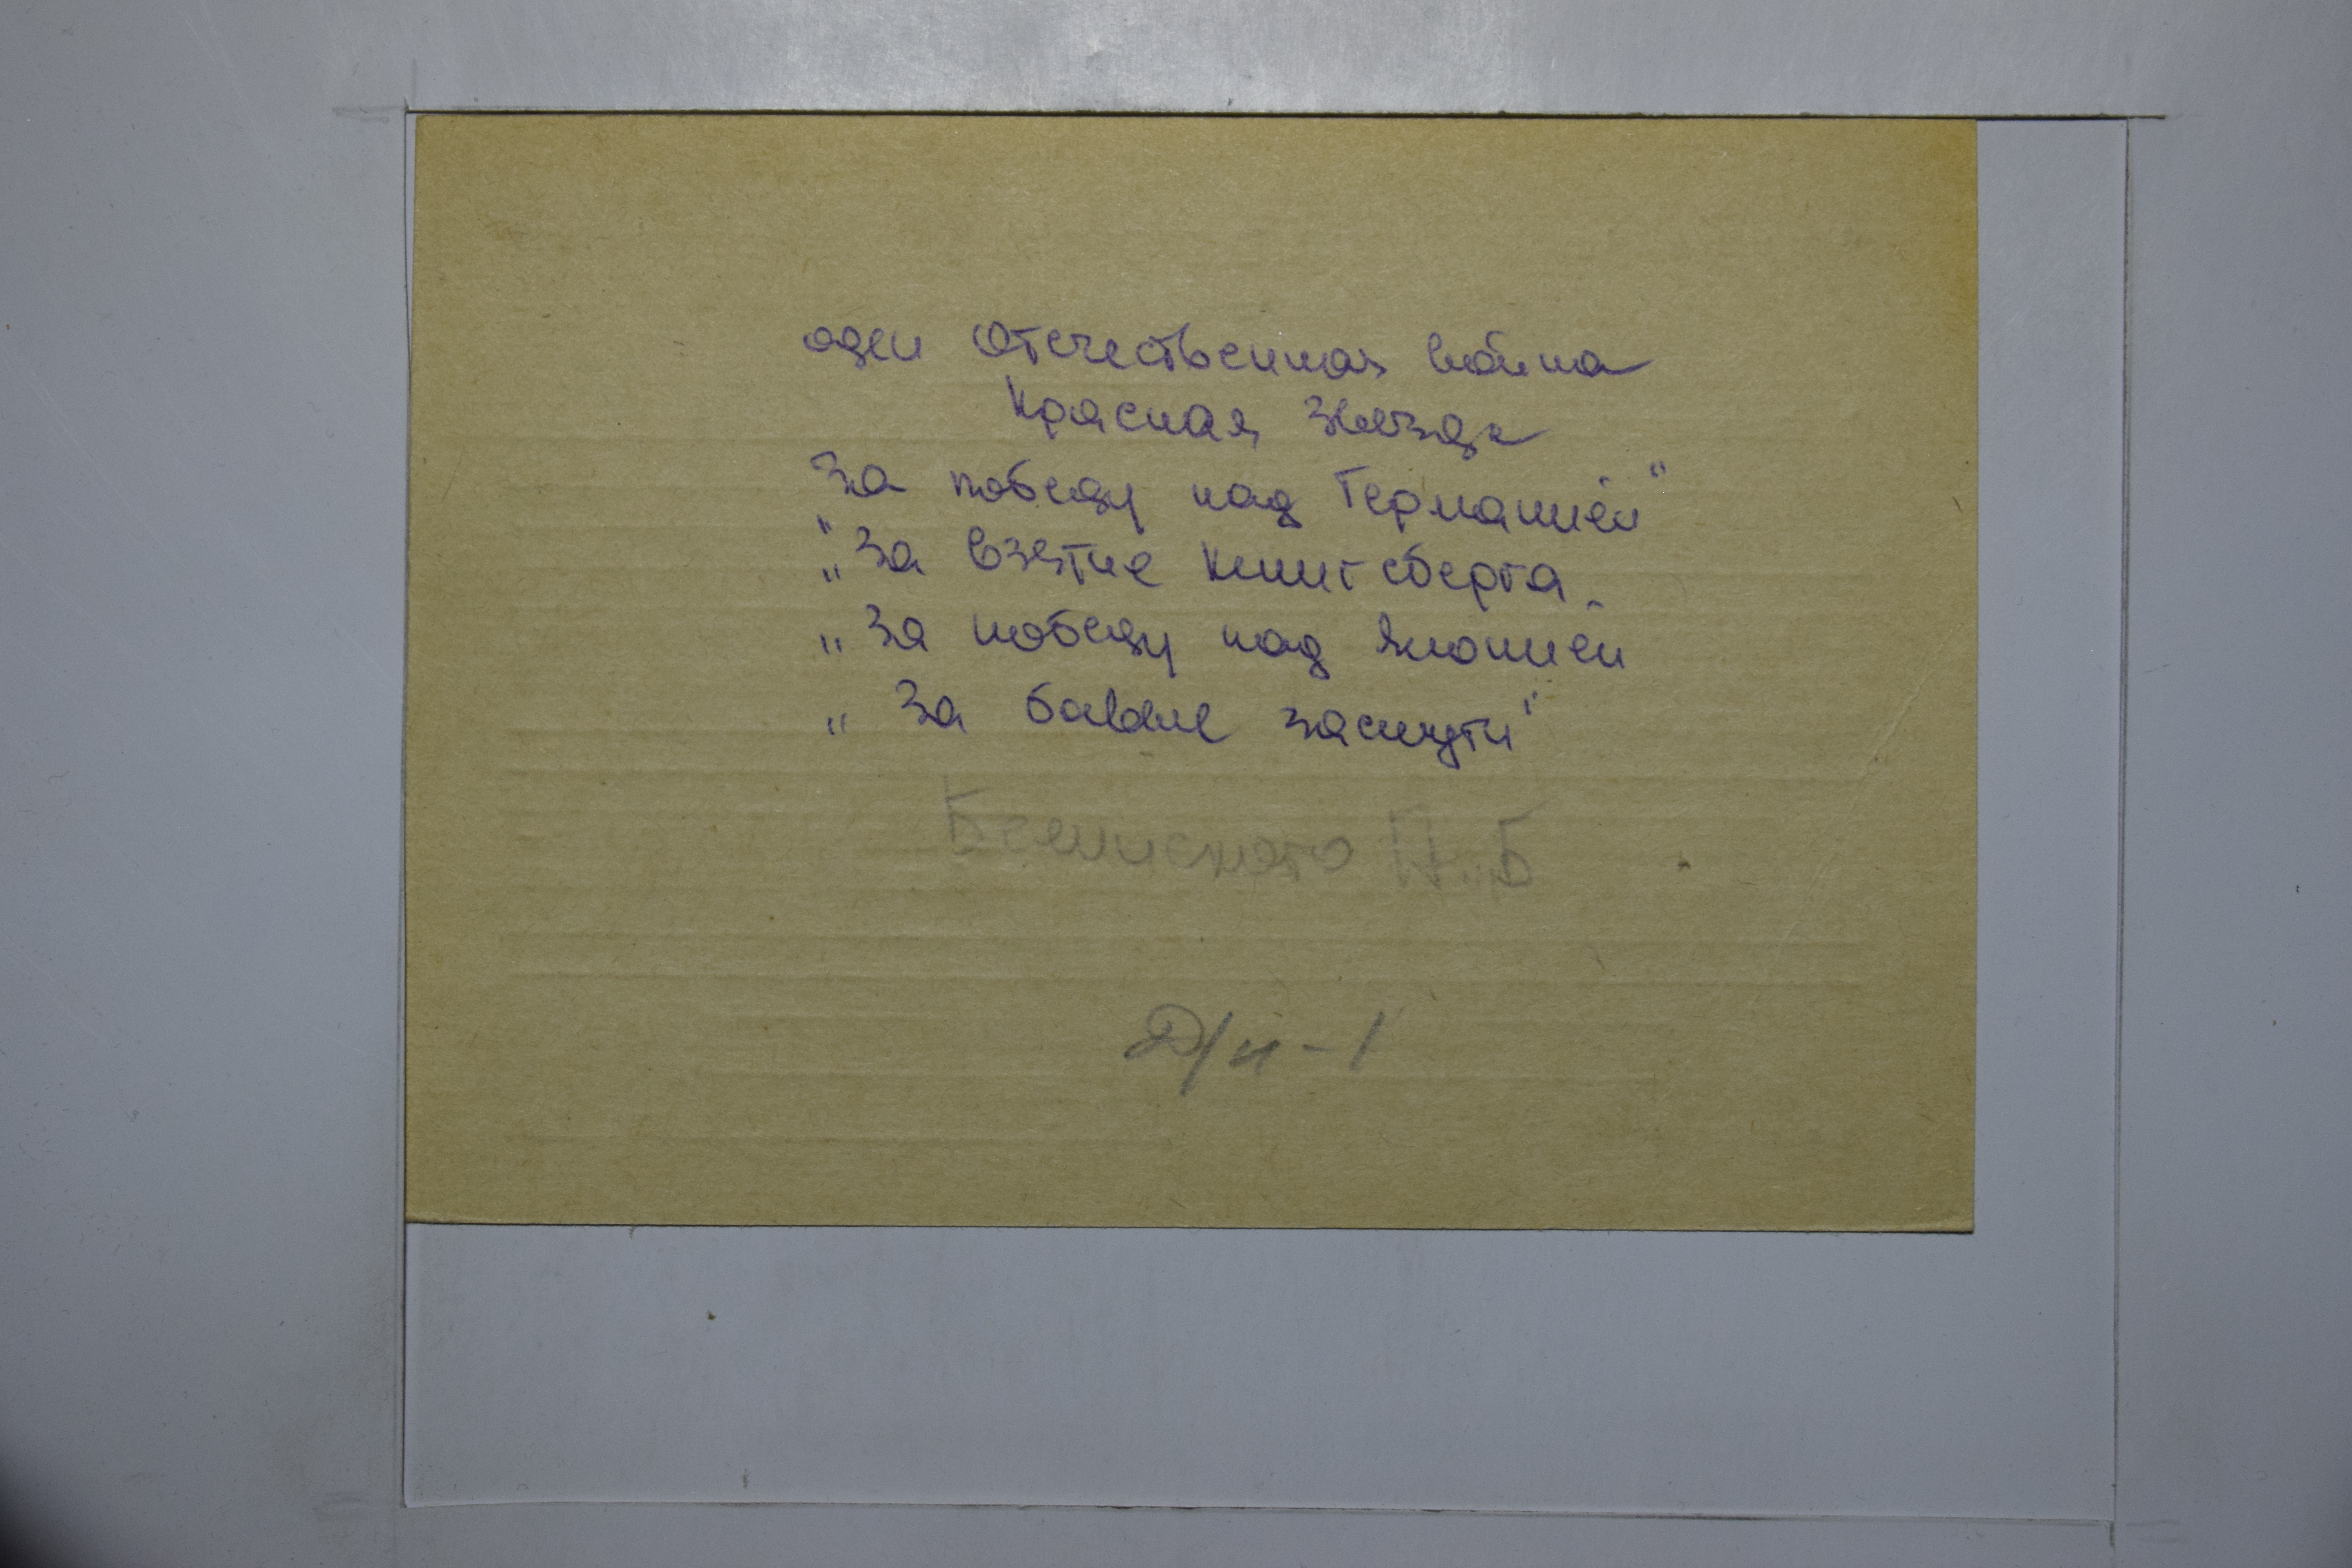 оден Отечественная война
Красная Звезда
За победу над Германией"
"
„За взятие Кенигсберга
„За победу над Японией
„За баевые заслуги"
Н. Б
Д/н-1